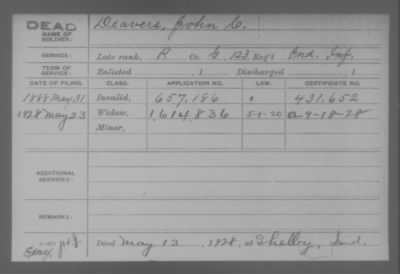 DEAD
NAME OF SOLDIER:
Deavers, John C.
SERVICE:
Late rank, P Co. G, 123 Reg't Ind. Inf.
TERM OF SERVICE:
Enlisted , 1 Discharged , 1
DATE OF FILING. CLASS. APPLICATION NO. LAW. CERTIFICATE NO.
1888 May 31 Invalid, 657,186 431,652
1928 May 23 Widow, 1,614,836 5-1-20 a-9-18-28
Minor,
ADDITIONAL SERVICES:
REMARKS:
Died May 13, 1928, at Shelby, Ind.